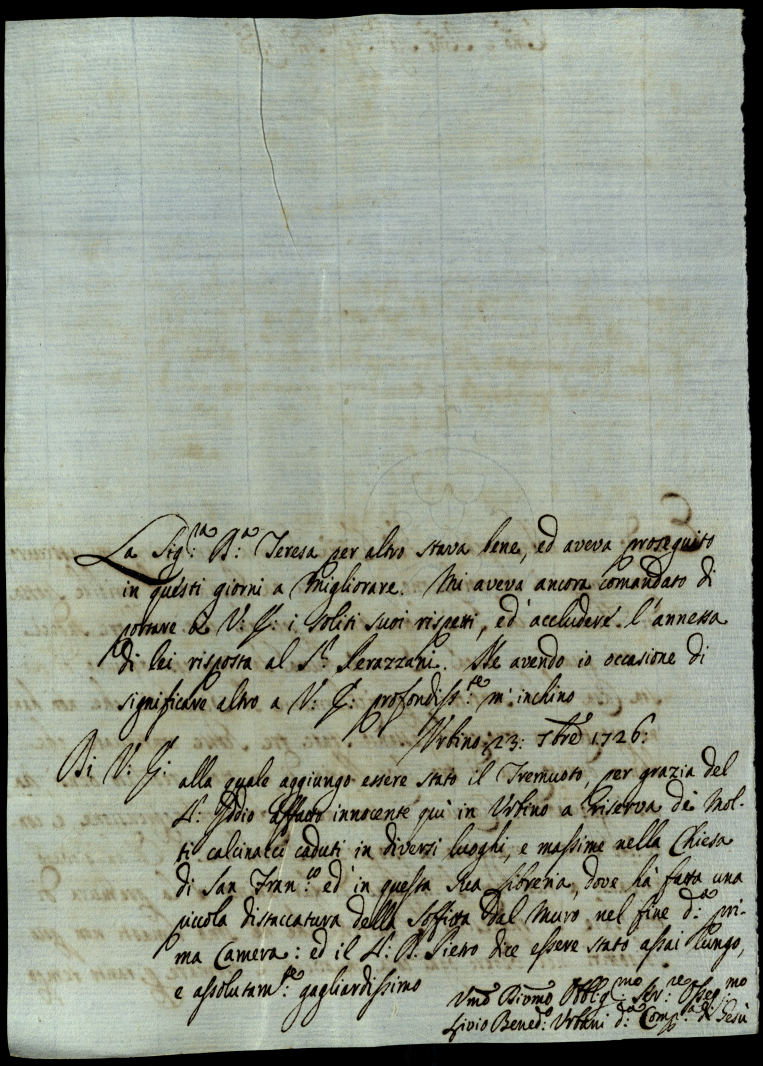 La Sig:ra B:a Teresa per altro stava bene, ed aveva proseguito
in questi giorni a migliorare. Mi aveva ancora comandato di
portare a V: E: i soliti suoi rispetti, ed accludere l'annessa
di lei risposta al S:r Perazzani. Ne avendo io occasione di
significare altro a V: E: profondiss:te m'inchino
Urbino 23: 7bre 1726:
Di V: E:
alla quale aggiungo essere stato il Tremuoto, per grazia del
S: Iddio affatto innocente quì in Urbino a riserva de mol-
ti calcinacci caduti in diversi luoghi, e massime nella Chiesa
di San Fran:co ed in questa sua Libreria, dove hà fatta una
picola distaccatura della soffitta dal muro nel fine d:a pri-
ma Camera: ed il S: D: Pietro dice essere stato assai lungo,
e assolutam:te gagliardissimo
Umo Divmo Obblig:mo Ser:re Osseq:mo
Livio Bened:o Urbani d:a Comp:a di Gesù